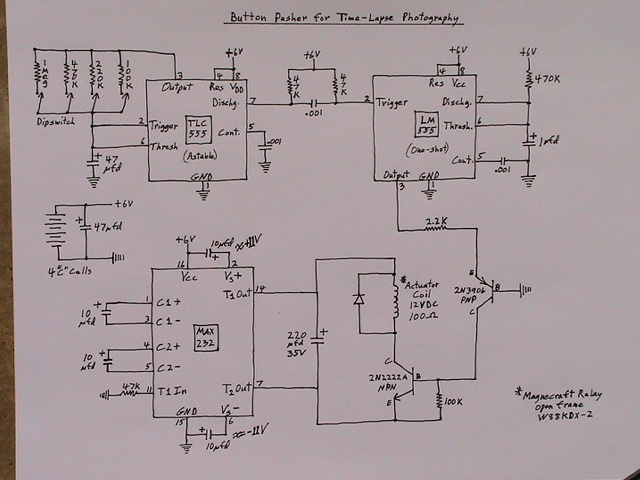 Button Pusher for Time-Lapse Photography
1 Meg
470K
220K
100K
Dipswitch
3
Output
+6V
4
8
Res
VDD
Dischg.
7
2
Trigger
TLC
555
Cont.
5
6
Thresh
(Astable)
.001
GND
1
+
47
μfd
+6V
47K
47K
.001
+6V
4
8
Res
Vcc
470K
Dischg.
7
2
Trigger
LM
555
Thresh.
6
+
1μfd
(One-shot)
Cont.
5
.001
Output
GND
3
1
+6V
+
47μfd
4 "C" Cells
2.2K
+6V
10μfd
+
≈+11V
16
2
Vcc
Vs+
T1 Out
14
+
10
μfd
1
C1+
3
C1-
MAX
232
4
C2+
+
10
μfd
5
C2-
47K
11
T1 In
T2 Out
7
GND
Vs-
15
6
+
10μfd
≈-11V
220
μfd
35V
+
*Actuator
Coil
12VDC
100Ω
E
2N3906
PNP
B
C
C
2N2222A
NPN
B
E
100K
*Magnecraft Relay
open frame
W88KDX-2